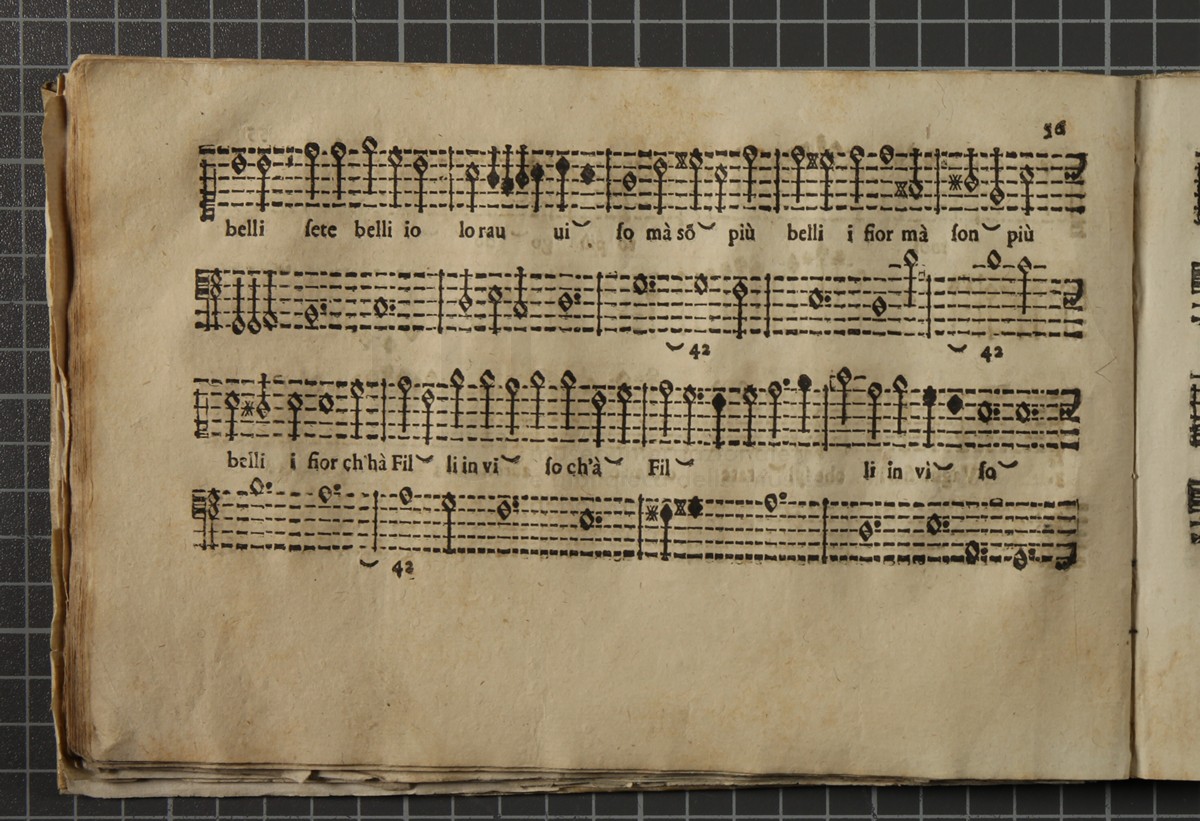 56
belli ſete belli io lo rau ui ſo mà sō più belli i fior mà ſon più
42 42
belli i fior ch'hà Fil li in vi ſo ch'à Fil li in vì ſo
42